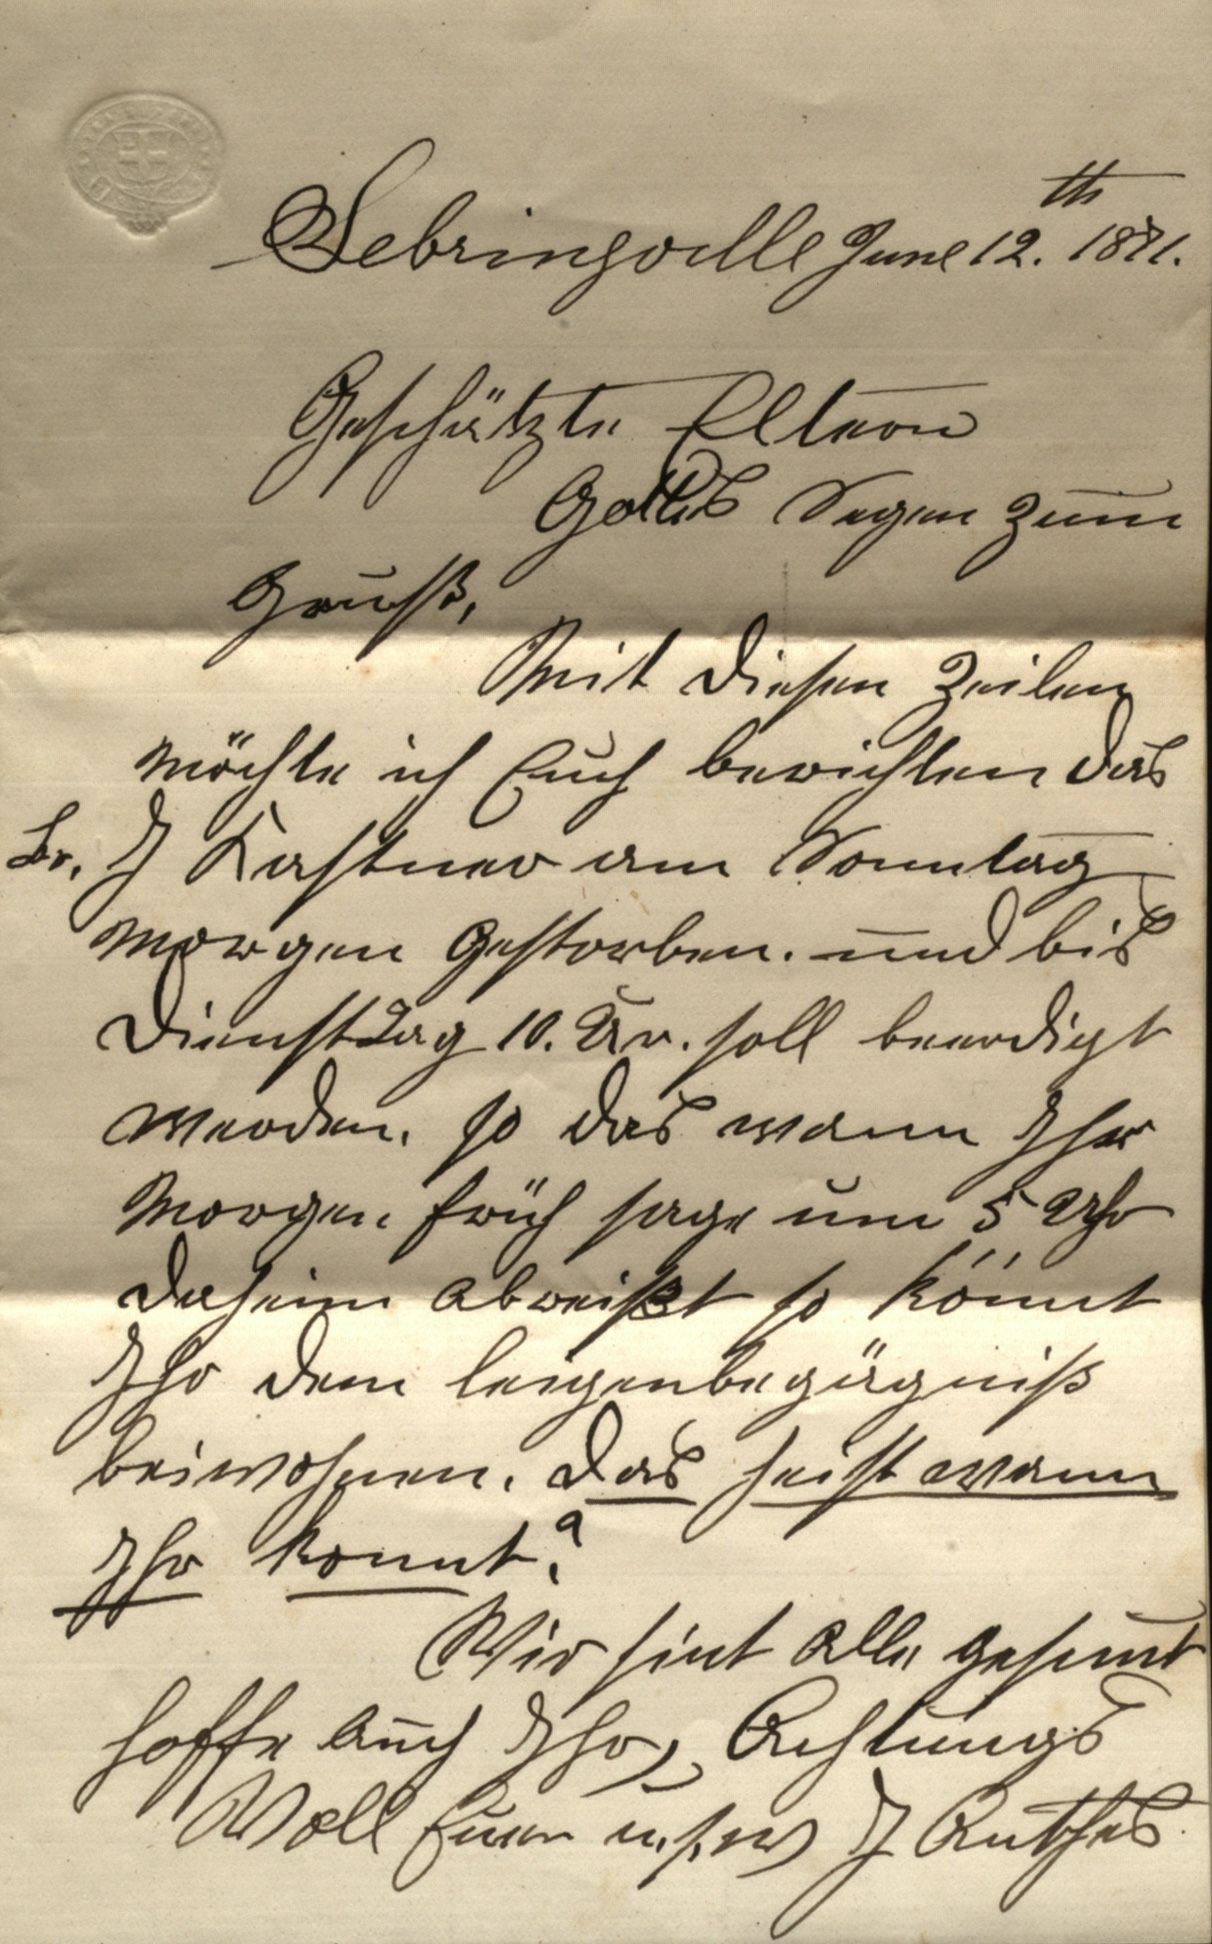 Sebringville June 12.th 1871.
Geschätzte Eltern
Gottes Segen zum
Gruß,
Mit diesen Zeilen
möchte ich Euch berichten das
Br. J Kastner am Sonntag
Morgen Gestorben. und bis
Dienstag 10. Ur. soll beerdigt
werden. so das wann Ihr
Morgen früh sage um 5 Uhr
daheim abreißt so könnt
Ihr dem leigenbegägniß
beiwohnen. das heist wann
Ihr konnt?
Wir sint alle gesunt
hoffe auch Ihr, Achtungs
Voll Euer u.s.w J